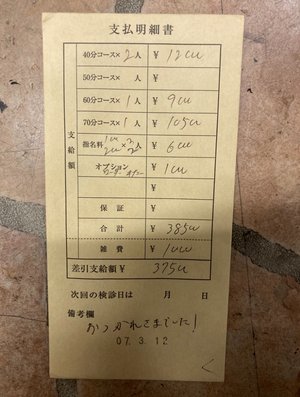 支払明細書
40分コース× 2人 ¥ 12000
50分コース× 人 ¥
60分コース× 1人 ¥ 9000
70分コース× 1人 ¥ 10500
支給額
指名料 1000 2000 × 2 2 人 ¥ 6000
オプション ¥ 1000
¥
保証 ¥
合計 ¥ 38500
雑費 ¥ 1000
差引支給額 ¥ 37500
次回の検診日は 月 日
備考欄
おつかれさまでした!
07. 3. 12